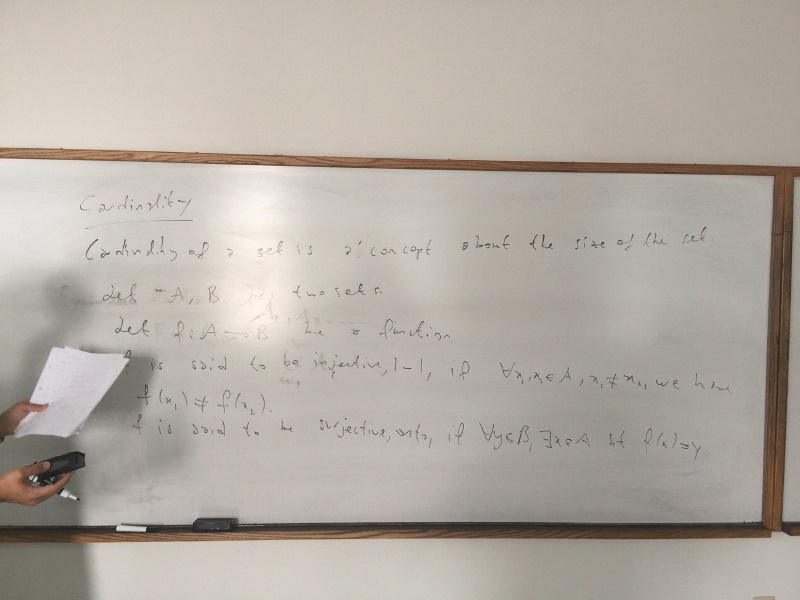 Cardinality
Cardinality of a set is a concept about the size of the set.
Let A, B be two sets.
Let f: A → B be a function.
f is said to be injective, 1-1, if ∀x₁,x₂∈A, x₁≠x₂, we have
f(x₁) ≠ f(x₂).
f is said to be surjective, onto, if ∀y∈B, ∃x∈A st f(x)=y.